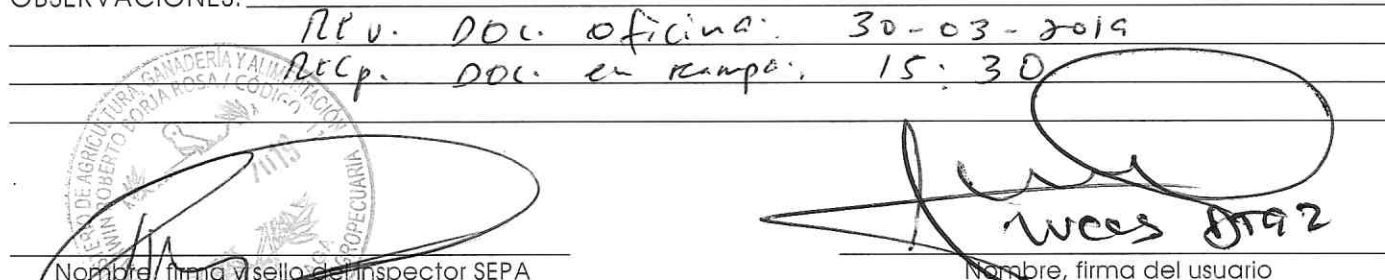 OBSERVACIONES:
Rev. Doc. oficina: 30-03-2019
Recp. Doc. en rampa: 15:30
GANADERÍA Y ALIMENTACIÓN
O DE AGRICULTURA
ROBERTO BORJA ROSA / CÓDIGO
2019
ROPECUARIA
Lucas Diaz
Nombre, firma y sello del Inspector SEPA
Nombre, firma del usuario